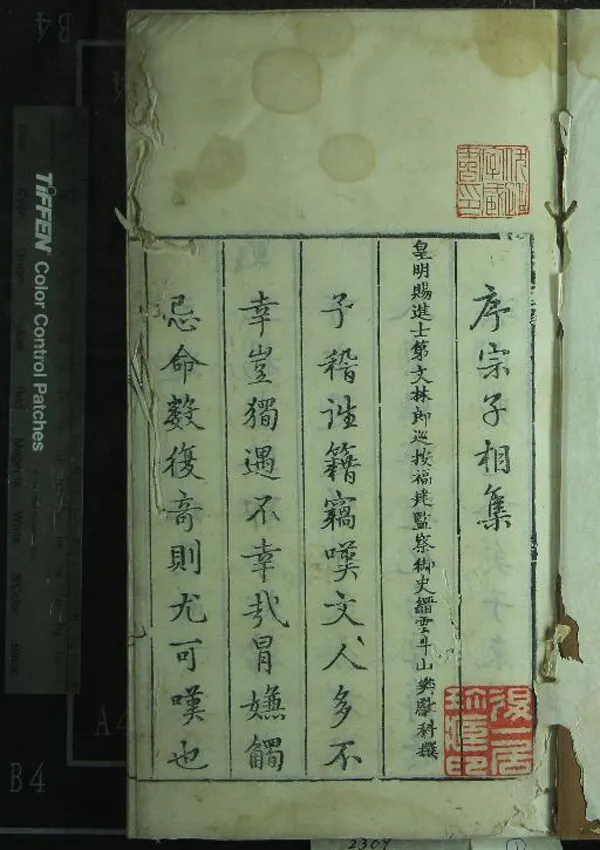 序宗子相集
皇明賜進士第文林郎巡按福建監察御史縉雲斗山樊獻科撰
予稽往籍竊嘆文人多不
幸豈獨遇不幸哉冐嫵觸
忌命數復竒則尤可嘆也
TIFFEN Color Control Patches
B4
A4
B4
2309
1